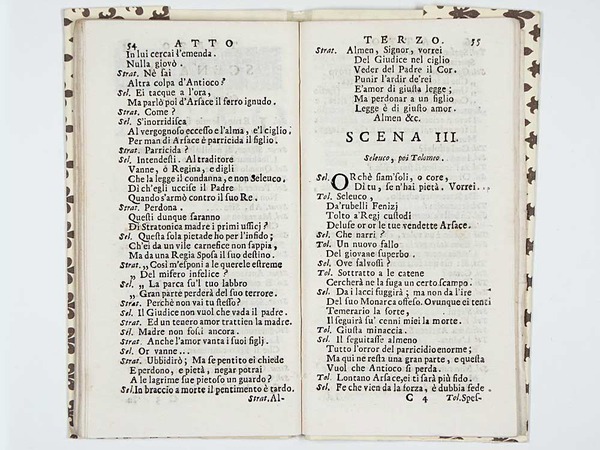 54 ATTO
In lui cercai l'emenda.
Nulla giovò.
Strat. Nè sai
Altra colpa d'Antioco?
Sel. Ei tacque a l'ora,
Ma parlò poi d'Arsace il ferro ignudo.
Strat. Come?
Sel. S'inorridisca
Al vergognoso eccesso e l'alma, e'l ciglio.
Per man di Arsace è parricida il figlio.
Strat. Parricida?
Sel. Intendesti. Al traditore
Vanne, ò Regina, e digli
Che la legge il condanna, e non Seleuco.
Di ch'egli uccise il Padre
Quando s'armò contro il suo Re.
Strat. Perdona.
Questi dunque saranno
Di Stratonica madre i primi ufficj?
Sel. Questa sola pietade ho per l'infido;
Ch'ei da un vile carnefice non sappia,
Ma da una Regia Sposa il suo destino.
Strat. „ Così m'esponi a le querele estreme
„ Del misero infelice?
Sel. „ La parca su'l tuo labbro
„ Gran parte perderà del suo terrore.
Strat. Perchè non vai tu stesso?
Sel. Il Giudice non vuol che vada il padre.
Strat. Ed un tenero amor trattien la madre.
Sel. Madre non fosti ancora.
Strat. Anche l'amor vanta i suoi figlj.
Sel. Or vanne...
Strat. Ubbidirò; Ma se pentito ei chiede
E perdono, e pietà, negar potrai
A le lagrime sue pietoso un guardo?
Sel. In braccio a morte il pentimento è tardo.
Strat. Al-
TERZO. 55
Strat. Almen, Signor, vorrei
Del Giudice nel ciglio
Veder del Padre il Cor.
Punir l'ardir de'rei
E'amor di giusta legge;
Ma perdonar a un figlio
Legge è di giusto amor.
Almen &c.
SCENA III.
Seleuco, poi Tolomeo.
Sel. ORchè siam'soli, o core,
Di tu, se n'hai pietà. Vorrei...
Tol. Seleuco,
Da'rubelli Fenizj
Tolto a'Regj custodi
Deluse or or le tue vendette Arsace.
Sel. Che narri?
Tol. Un nuovo fallo
Del giovane superbo.
Sel. Ove salvossi?
Tol. Sottratto a le catene
Cercherà ne la fuga un certo scampo.
Sel. Da i lacci fuggirà; ma non da l'ire
Del suo Monarca offeso. Ovunque ei tenti
Temerario la sorte,
Il seguirà su' cenni miei la morte.
Tol. Giusta minaccia.
Sel. Il seguitasse almeno
Tutto l'orror del parricidio enorme;
Ma qui ne resta una gran parte, e questa
Vuol che Antioco si perda.
Tol. Lontano Arsace, ei ti sarà più fido.
Sel. Fe che vien da la forza, è dubbia fede.
C 4 Tol. Spes-